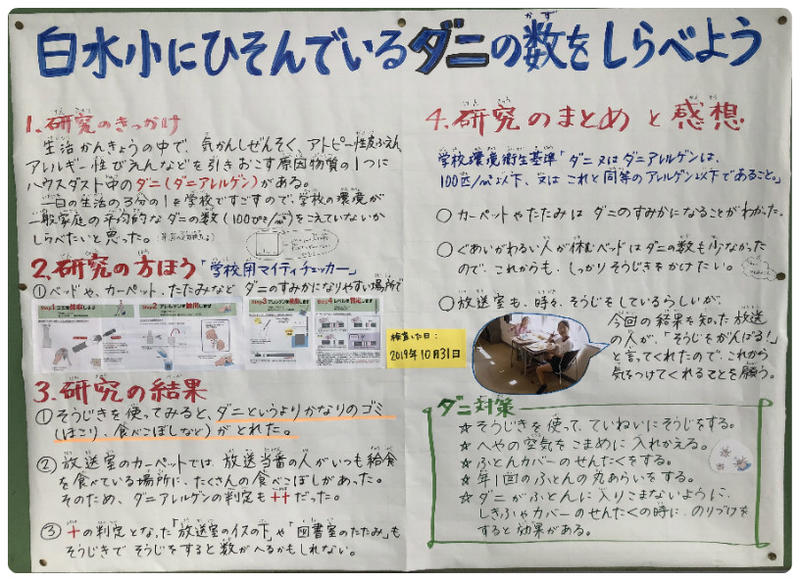 白水小にひそんでいるダニの数をしらべよう
1.研究のきっかけ
生活かんきょうの中で、気かんしぜんそく、アトピー性皮ふえん
アレルギー性びえんなどを引きおこす原因物質の1つに
ハウスダスト中のダニ(ダニアレルゲン)がある。
一日の生活の3分の1を学校ですごすので、学校の環境が
一般家庭の平均的なダニの数(100ぴき/㎡)をこえていないか
しらべたいと思った。
2.研究の方ほう「学校用マイティチェッカー」
①ベッドや、カーペット、たたみなど ダニのすみかになりやすい場所で
Step1
Step2
Step3
Step4
検査した日:
2019年10月31日
3.研究の結果
①そうじきを使ってみると、ダニというよりかなりのゴミ
(ほこり、食べこぼしなど)がとれた。
②放送室のカーペットでは、放送当番の人がいつも給食
を食べている場所に、たくさんの食べこぼしがあった。
そのため、ダニアレルゲンの判定も++だった。
③+の判定となった「放送室のイスの下」や「図書室のたたみ」も
そうじきでそうじをすると数がへるかもしれない。
4.研究のまとめと感想
学校環境衛生基準「ダニ又はダニアレルゲンは、
100匹/㎡以下、又はこれと同等のアレルゲン以下であること。」
○カーペットやたたみはダニのすみかになることがわかった。
○ぐあいがわるい人が休むベッドはダニの数も少なかった
ので、これからも、しっかりそうじきをかけたい。
○放送室も、時々、そうじをしているらしいが、
今回の結果を知った放送
の人が、「そうじをがんばる!」
と言ってくれたので、これから
気をつけてくれることを願う。
ダニ対策
☆そうじきを使って、ていねいにそうじをする。
☆へやの空気をこまめに入れかえる。
☆ふとんカバーのせんたくをする。
☆年1回のふとんの丸あらいをする。
☆ダニがふとんに入りこまないように、
しきふやカバーのせんたくの時に、のりづけを
すると効果がある。